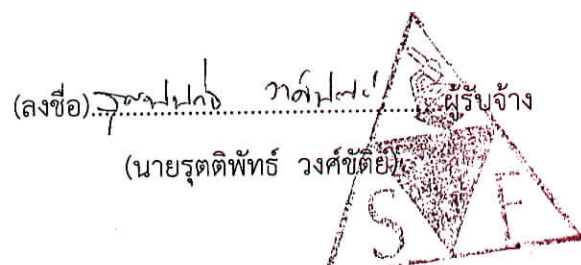 (ลงชื่อ)....................ผู้รับจ้าง
(นายรุตติพัทธ์ วงศ์ขัติย์)
S F